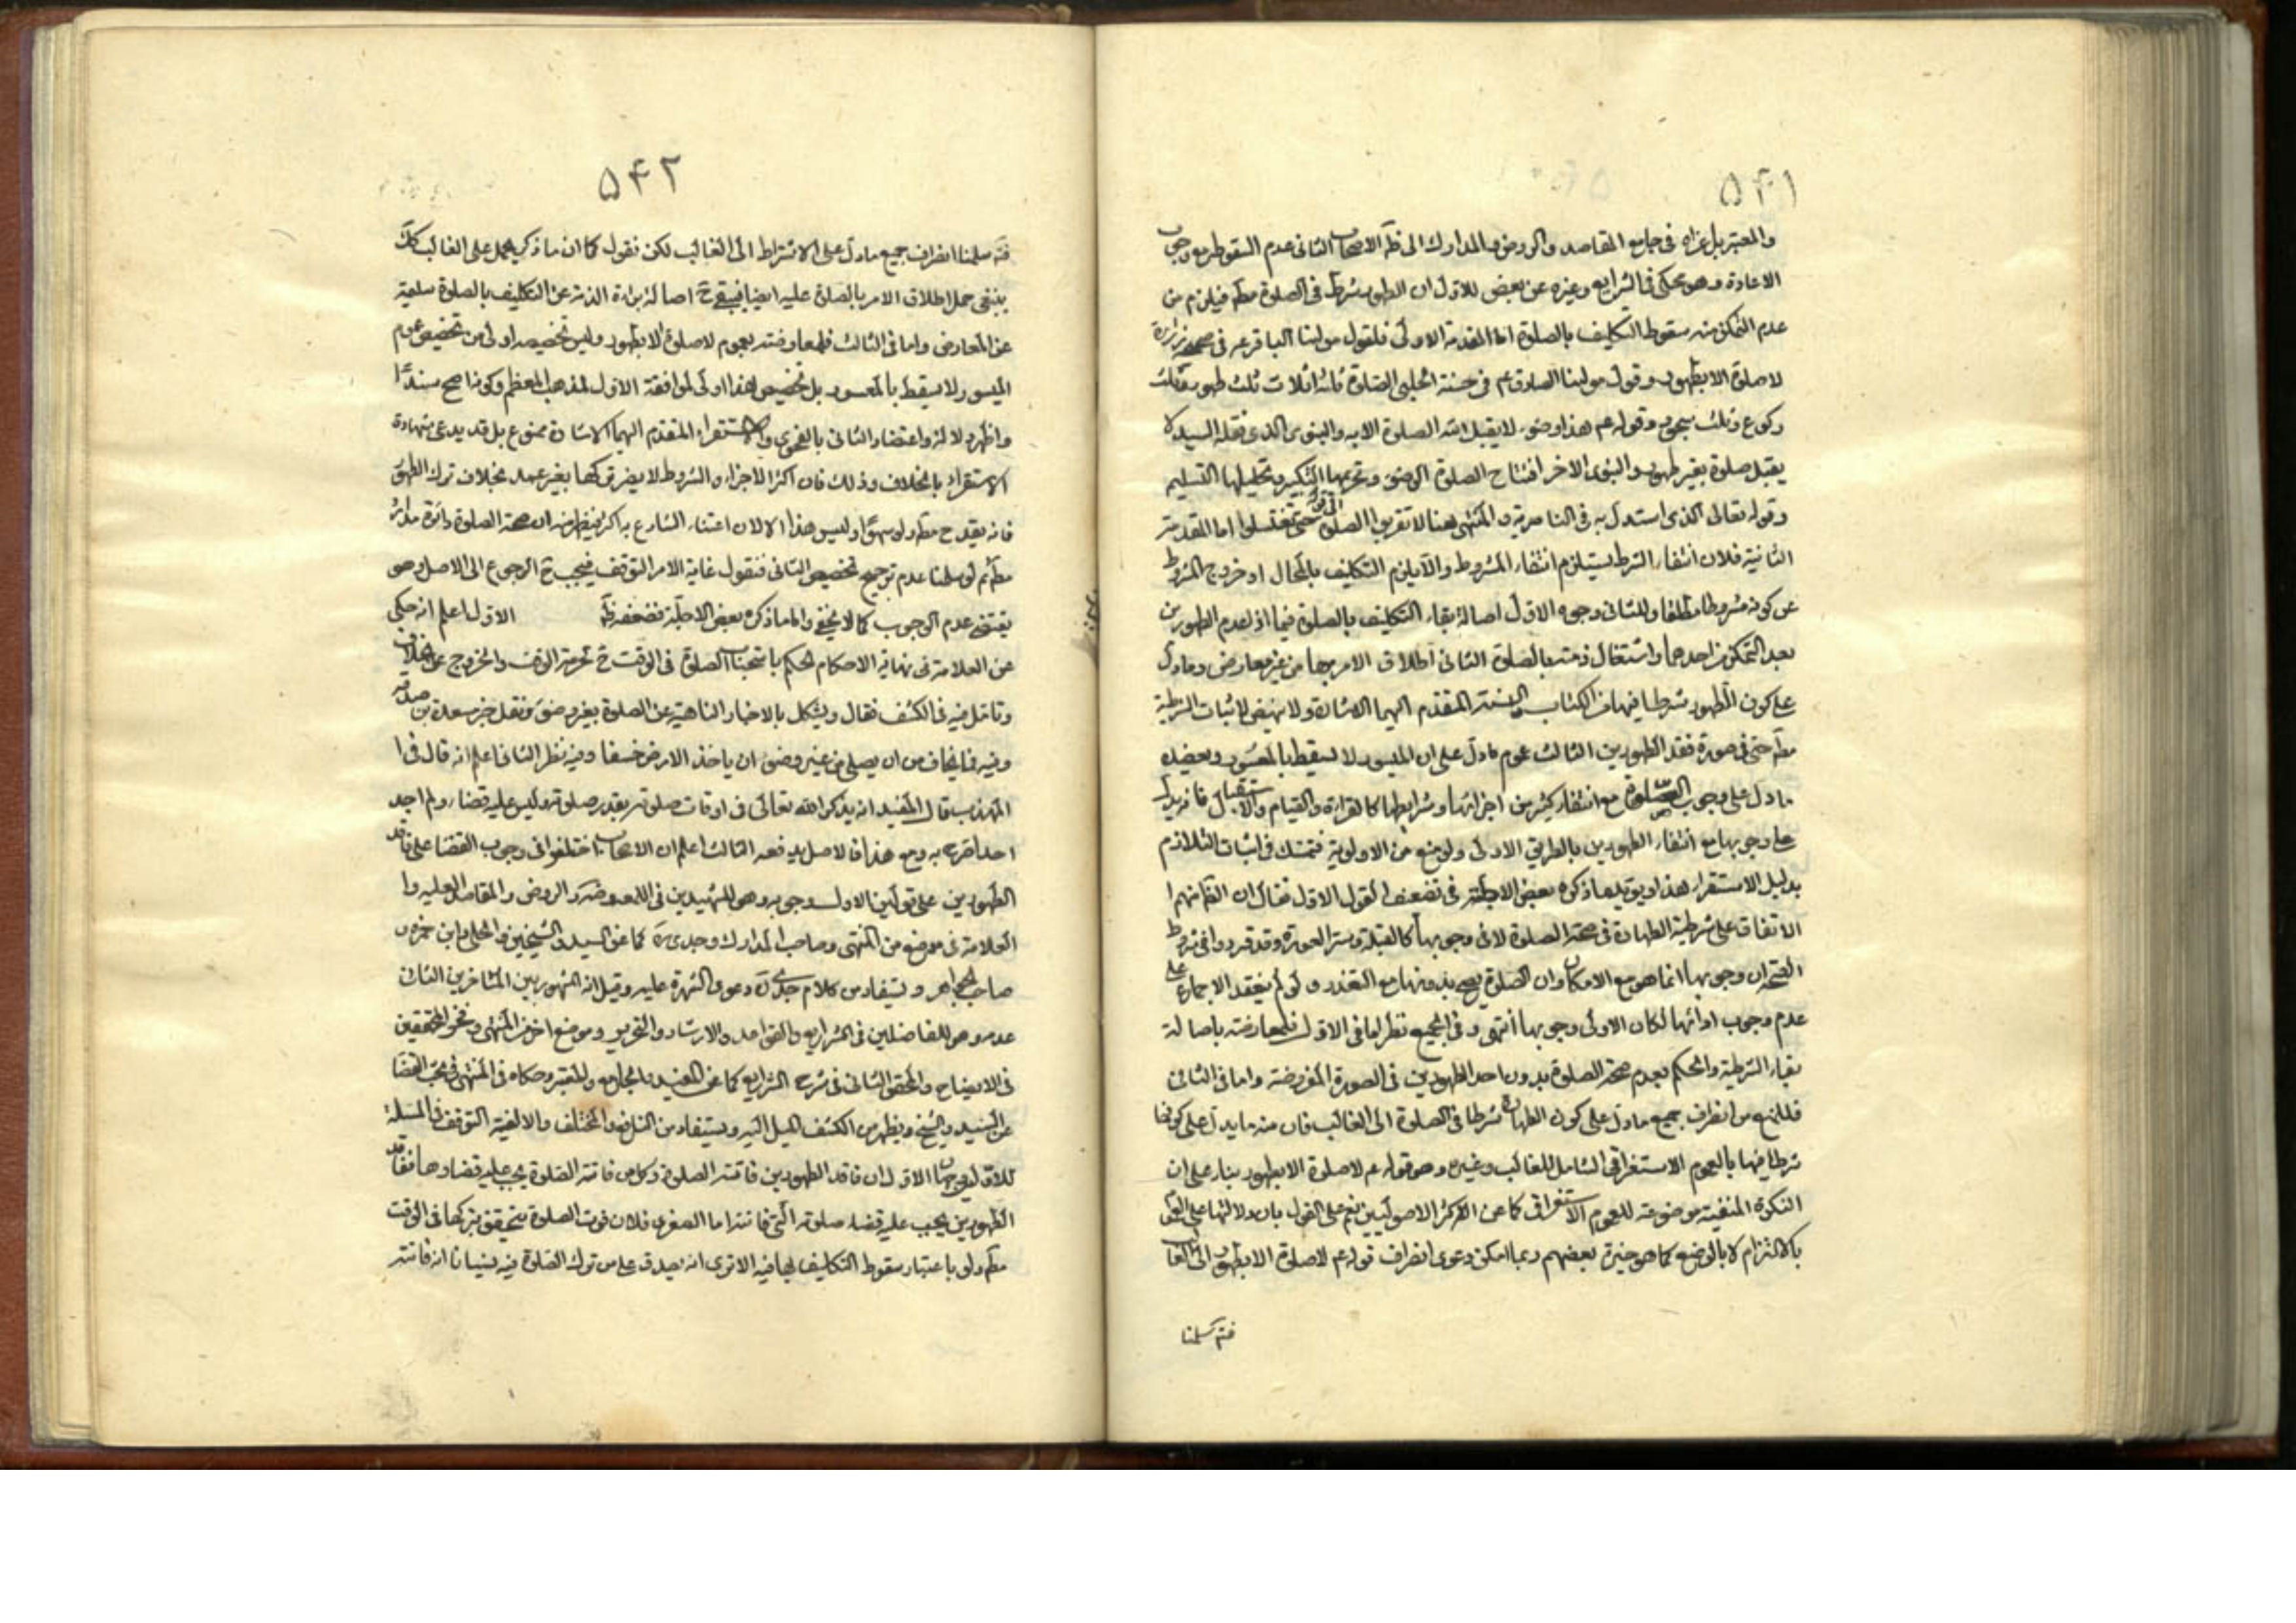 ۵۴۱
والمعتبر بل عزاه فى جامع المقاصد والروض والمدارك الى ظه الاصحاب الثانى عدم السقوط مع وجوب
الاعادة وهو محكى فى الشرايع وغيره عن بعض للاول ان الطهور شرط فى الصلوة مطه فيلزم من
عدم التمكن منه سقوط التكليف بالصلوة اما المقدمة الاولى فلقول مولينا الباقر عم فى صحيحة زرارة
لا صلوة الا بطهور وقول مولينا الصادق عم فى حسنة الحلبى الصلوة ثلثة اثلاث ثلث طهور وثلث
ركوع وثلث سجود وقوله عم هذا وضوء لا يقبل الله الصلوة الا به والنبوى الذى نقله السيد لا
يقبل صلوة بغير طهور والنبوى الاخر افتتاح الصلوة الوضوء وتحريمها التكبير وتحليلها التسليم
وقوله تعالى الذى استدل به فى الناصرية والمنتهى هنا لا تقربوا الصلوة الى قوله حتى تغتسلوا اما المقدمة
الثانية فلان انتفاء الشرط يستلزم انتفاء المشروط والا يلزم التكليف بالمحال او خروج المشروط
عن كونه مشروطا مطلقا وللثانى وجوه الاول اصالة بقاء التكليف بالصلوة فيما اذا عدم الطهورين
بعد التمكن من احدهما واشتغال ذمته بالصلوة الثانى اطلاق الامر بها من غير معارض وما دل
على كون الطهور شرطا فيها من الكتاب والسنة المتقدم اليهما الاشارة ولا ينهض لاثبات الشرطية
مطه حتى فى صورة فقد الطهورين الثالث عموم ما دل على ان الميسور لا يسقط بالمعسور ويعضده
ما دل على وجوب الصلوة مع انتفاء كثير من اجزائها وشرايطها كالقراءة والقيام والاستقبال فانه يدل
على وجوبها مع انتفاء الطهورين بالطريق الاولى ولو منع من الاولوية فنتمسك فى اثبات التلازم
بدليل الاستقراء هذا ويؤيده ما ذكره بعض الاجلة فى تضعيف القول الاول فقال ان القائم هم
الاتفاق على شرطية الطهارة فى صحة الصلوة لا فى وجوبها كالقبلة وستر العورة وقد قرروا فى شروط
الصحة ان وجوبها انما هو مع الامكان وان الصلوة يصح بدونها مع التعذر ولو لم ينعقد الاجماع على
عدم وجوب ادائها لكان الاولى وجوبها انتهى وفى الجميع نظر اما فى الاول فلمعارضته باصالة
بقاء الشرطية والحكم بعدم صحة الصلوة بدون احد الطهورين فى الصورة المفروضة واما فى الثانى
فللمنع من انصراف جميع ما دل على كون الطهارة شرطا فى الصلوة الى الغالب فان منه ما يدل على كونها
شرطا فيها بالعموم الاستغراقى الشامل للغالب وغيره وهو قوله عم لا صلوة الا بطهور بناء على ان
النكرة المنفية موضوعة للعموم الاستغراقى كما عن اكثر الاصوليين نعم على القول بان دلالتها على العموم
بالالتزام لا بالوضع كما هو خيرة بعضهم ربما امكن دعوى انصراف قوله عم لا صلوة الا بطهور الى الغالب
سلمنا
۵۴۲
سلمنا انصراف جميع ما دل على الاشتراط الى الغالب لكن نقول كما ان ما ذكر يحمل على الغالب كك
ينبغى حمل اطلاق الامر بالصلوة عليه ايضا فيبقى ح اصالة براءة الذمة عن التكليف بالصلوة سليمة
عن المعارض واما فى الثالث فلمعارضته بعموم لا صلوة الا بطهور وليس تخصيصه اولى من تخصيص عموم
الميسور لا يسقط بالمعسور بل تخصيص هذا اولى لموافقة الاول لمذهب المعظم وكونه اصح سندا
واظهر دلالة واعتضاد الثانى بالفحوى والاستقراء المتقدم اليهما الاشارة ممنوع بل قد يدعى شهادة
الاستقراء بالخلاف وذلك فان اكثر الاجزاء والشروط لا يضر تركها بغير عمد بخلاف ترك الطهور
فانه يقدح مطه ولو سهوا وليس هذا الا لان اعتناء الشارع به اكثر فيظهر منه ان صحة الصلوة دائرة مداره
مطه ثم لو سلمنا عدم ترجيح تخصيص الثانى فنقول غاية الامر التوقف فيجب ح الرجوع الى الاصل وهو
يقتضى عدم الوجوب كما لا يخفى واما ما ذكره بعض الاجلة فضعفه ظه الاول اعلم انه حكى
عن العلامة فى نهاية الاحكام الحكم باستحباب الصلوة فى الوقت ح لحرمة الوقت والخروج عن الخلاف
وتامل فيه فى الكشف فقال ويشكل بالاخبار الناهية عن الصلوة بغير وضوء ونقل خبر مسعدة بن صدقة
وفيه فما يخاف من ان يصلى من غير وضوء ان ياخذه الارض خسفا وفيه نظر الثانى اعلم انه قال فى
المهذب قال المفيد انه يذكر الله تعالى فى اوقات صلوته بقدر صلوته وليس عليه قضاء ولم اجد
احدا صرح به ومع هذا فالاصل يدفعه الثالث اعلم ان الاصحاب اختلفوا فى وجوب القضا على فاقد
الطهورين على قولين الاول وجوبه وهو للشهيدين فى اللمعه وضه والروض والمقاصد العليه و
العلامة فى موضع من المنتهى وصاحب المدارك وجدى ره كما عن السيد والشيخين والحلى وابن حمزه و
صاحب الجواهر ويستفاد من كلام جدى ره دعوى الشهرة عليه وقيل انه المشهور بين المتاخرين الثانى
عدمه وهو للفاضلين فى الشرايع والقواعد والارشاد والتحرير وموضع اخر من المنتهى وفخر المحققين
فى الايضاح والمحقق الثانى فى شرح الشرايع كما عن المفيد والجامع والمعتبر وحكاه فى المنتهى فى بحث القضا
عن السيد والشيخ ويظهر من الكشف الميل اليه ويستفاد من والمختلف والالفية التوقف فى المسئلة
للاول وجوه الاول ان فاقد الطهورين فاتته الصلوة وكل من فاتته الصلوة يجب عليه قضاءها ففاقد
الطهورين يجب عليه قضاء صلوته التى فاتته اما الصغرى فلان فوت الصلوة يتحقق بتركها فى الوقت
مطه ولو باعتبار سقوط التكليف بها فيه الا ترى انه يصدق على من ترك الصلوة فيه نسيانا انه فاتته